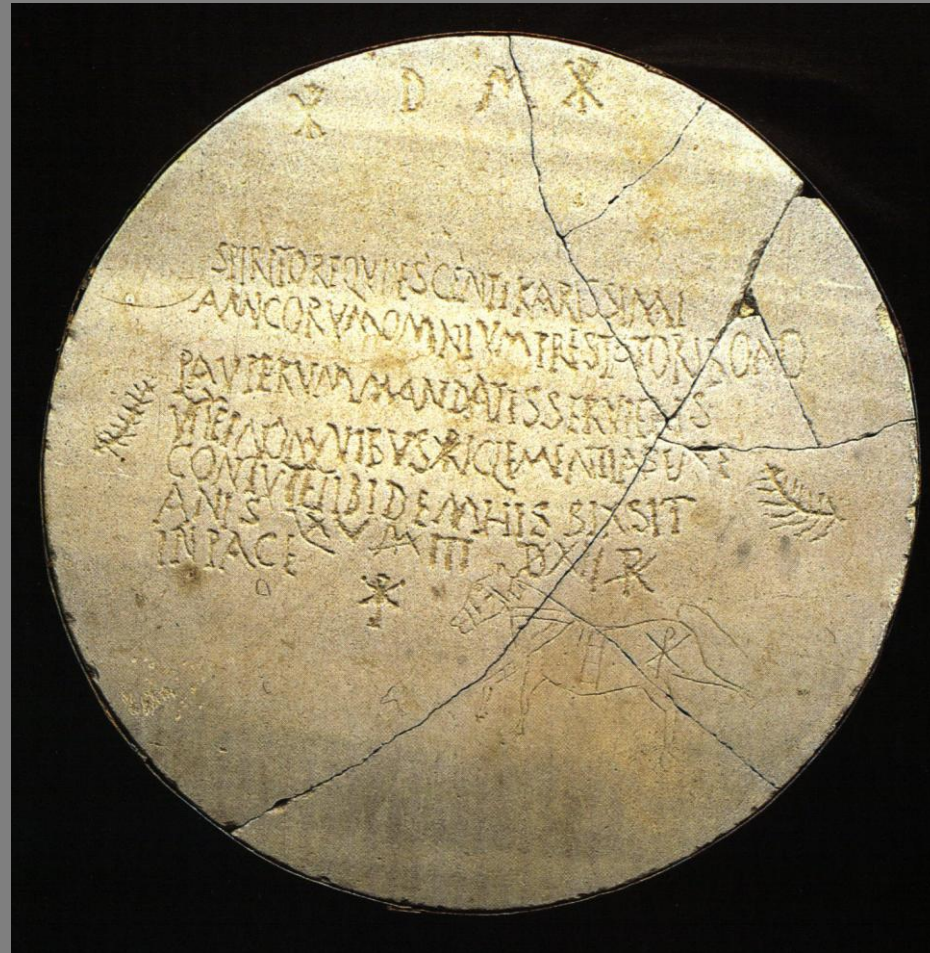 ☧ D M ☧
SPIRITO REQVIESCENTI KARISSIMI
AMICORVM OMNIVM PRESTATORI BONO
PAVPERVM MANDATIS SERVIENS
OMNVIBVS
IBIDEM HIS BIXSIT
ANIS LXV M III D XII ☧
IN PACE
☧